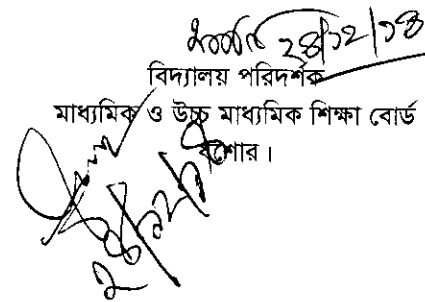 ২৪/১২/১৪
বিদ্যালয় পরিদর্শক
মাধ্যমিক ও উচ্চ মাধ্যমিক শিক্ষা বোর্ড
যশোর।